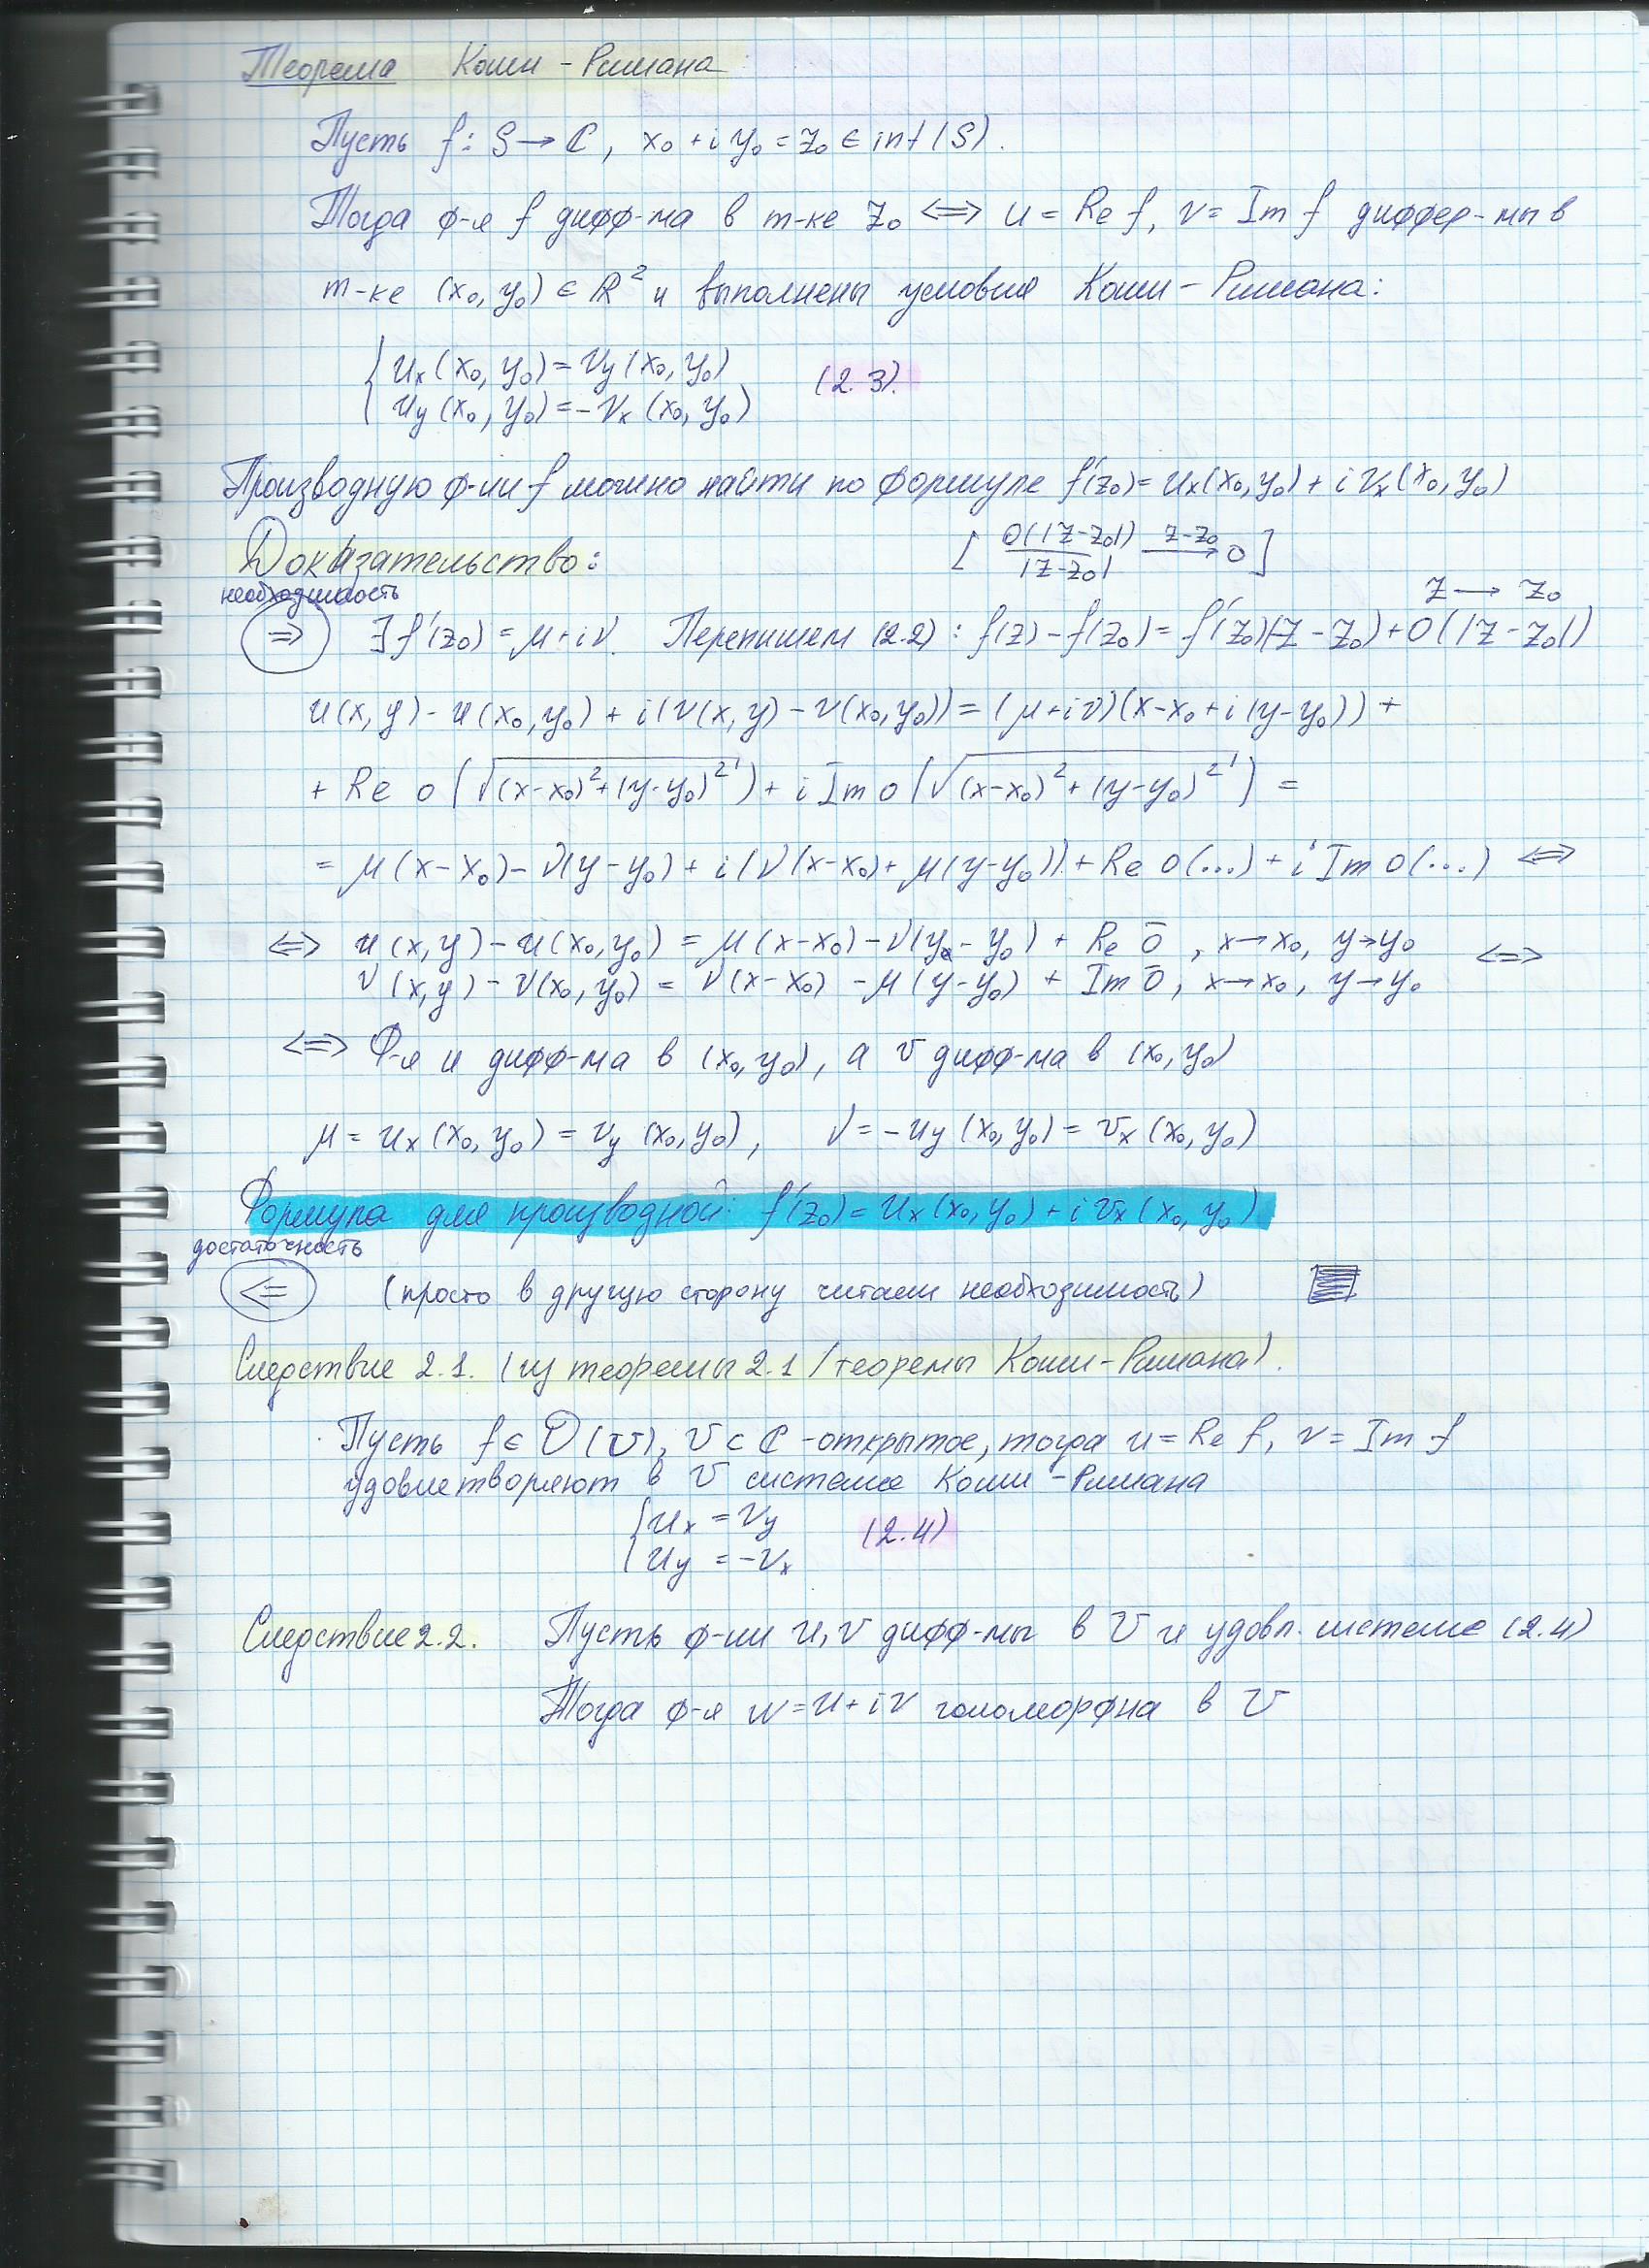 Теорема Коши - Римана
Пусть f: S → ℂ, x₀ + i y₀ = z₀ ∈ int(S).
Тогда ф-я f дифф-ма в т-ке z₀ ⟺ u = Re f, v = Im f диффер-мы в
т-ке (x₀, y₀) ∈ ℝ² и выполнены условия Коши - Римана:
{ uₓ(x₀, y₀) = v_y(x₀, y₀)
{ u_y(x₀, y₀) = -vₓ(x₀, y₀) (2.3).
Производную ф-ии f можно найти по формуле f'(z₀) = uₓ(x₀, y₀) + i vₓ(x₀, y₀)
Доказательство: [ o(|z-z₀|)/|z-z₀| → 0 ] z-z₀
необходимость z → z₀
⇒ ∃ f'(z₀) = μ + iν. Перепишем (2.2): f(z) - f(z₀) = f'(z₀)(z - z₀) + o(|z - z₀|)
u(x, y) - u(x₀, y₀) + i(v(x, y) - v(x₀, y₀)) = (μ + iν)(x - x₀ + i(y - y₀)) +
+ Re o(√((x-x₀)² + (y-y₀)²)) + i Im o(√((x-x₀)² + (y-y₀)²)) =
= μ(x - x₀) - ν(y - y₀) + i(ν(x - x₀) + μ(y - y₀)) + Re o(...) + i Im o(...) ⟺
⟺ u(x, y) - u(x₀, y₀) = μ(x - x₀) - ν(y - y₀) + Re ō, x → x₀, y → y₀ ⟺
v(x, y) - v(x₀, y₀) = ν(x - x₀) - μ(y - y₀) + Im ō, x → x₀, y → y₀
⟺ Ф-я u дифф-ма в (x₀, y₀), а v дифф-ма в (x₀, y₀)
μ = uₓ(x₀, y₀) = v_y(x₀, y₀), ν = -u_y(x₀, y₀) = vₓ(x₀, y₀)
Формула для производной: f'(z₀) = uₓ(x₀, y₀) + i vₓ(x₀, y₀)
достаточность
⇐ (просто в другую сторону читаем необходимость)
Следствие 2.1. (из теоремы 2.1 / теоремы Коши-Римана).
Пусть f ∈ O(U), U ⊂ ℂ - открытое, тогда u = Re f, v = Im f
удовлетворяют в U системе Коши - Римана
{ uₓ = v_y
{ u_y = -vₓ (2.4)
Следствие 2.2. Пусть ф-ии u, v дифф-мы в U и удовл. системе (2.4)
Тогда ф-я w = u + iv голоморфна в U